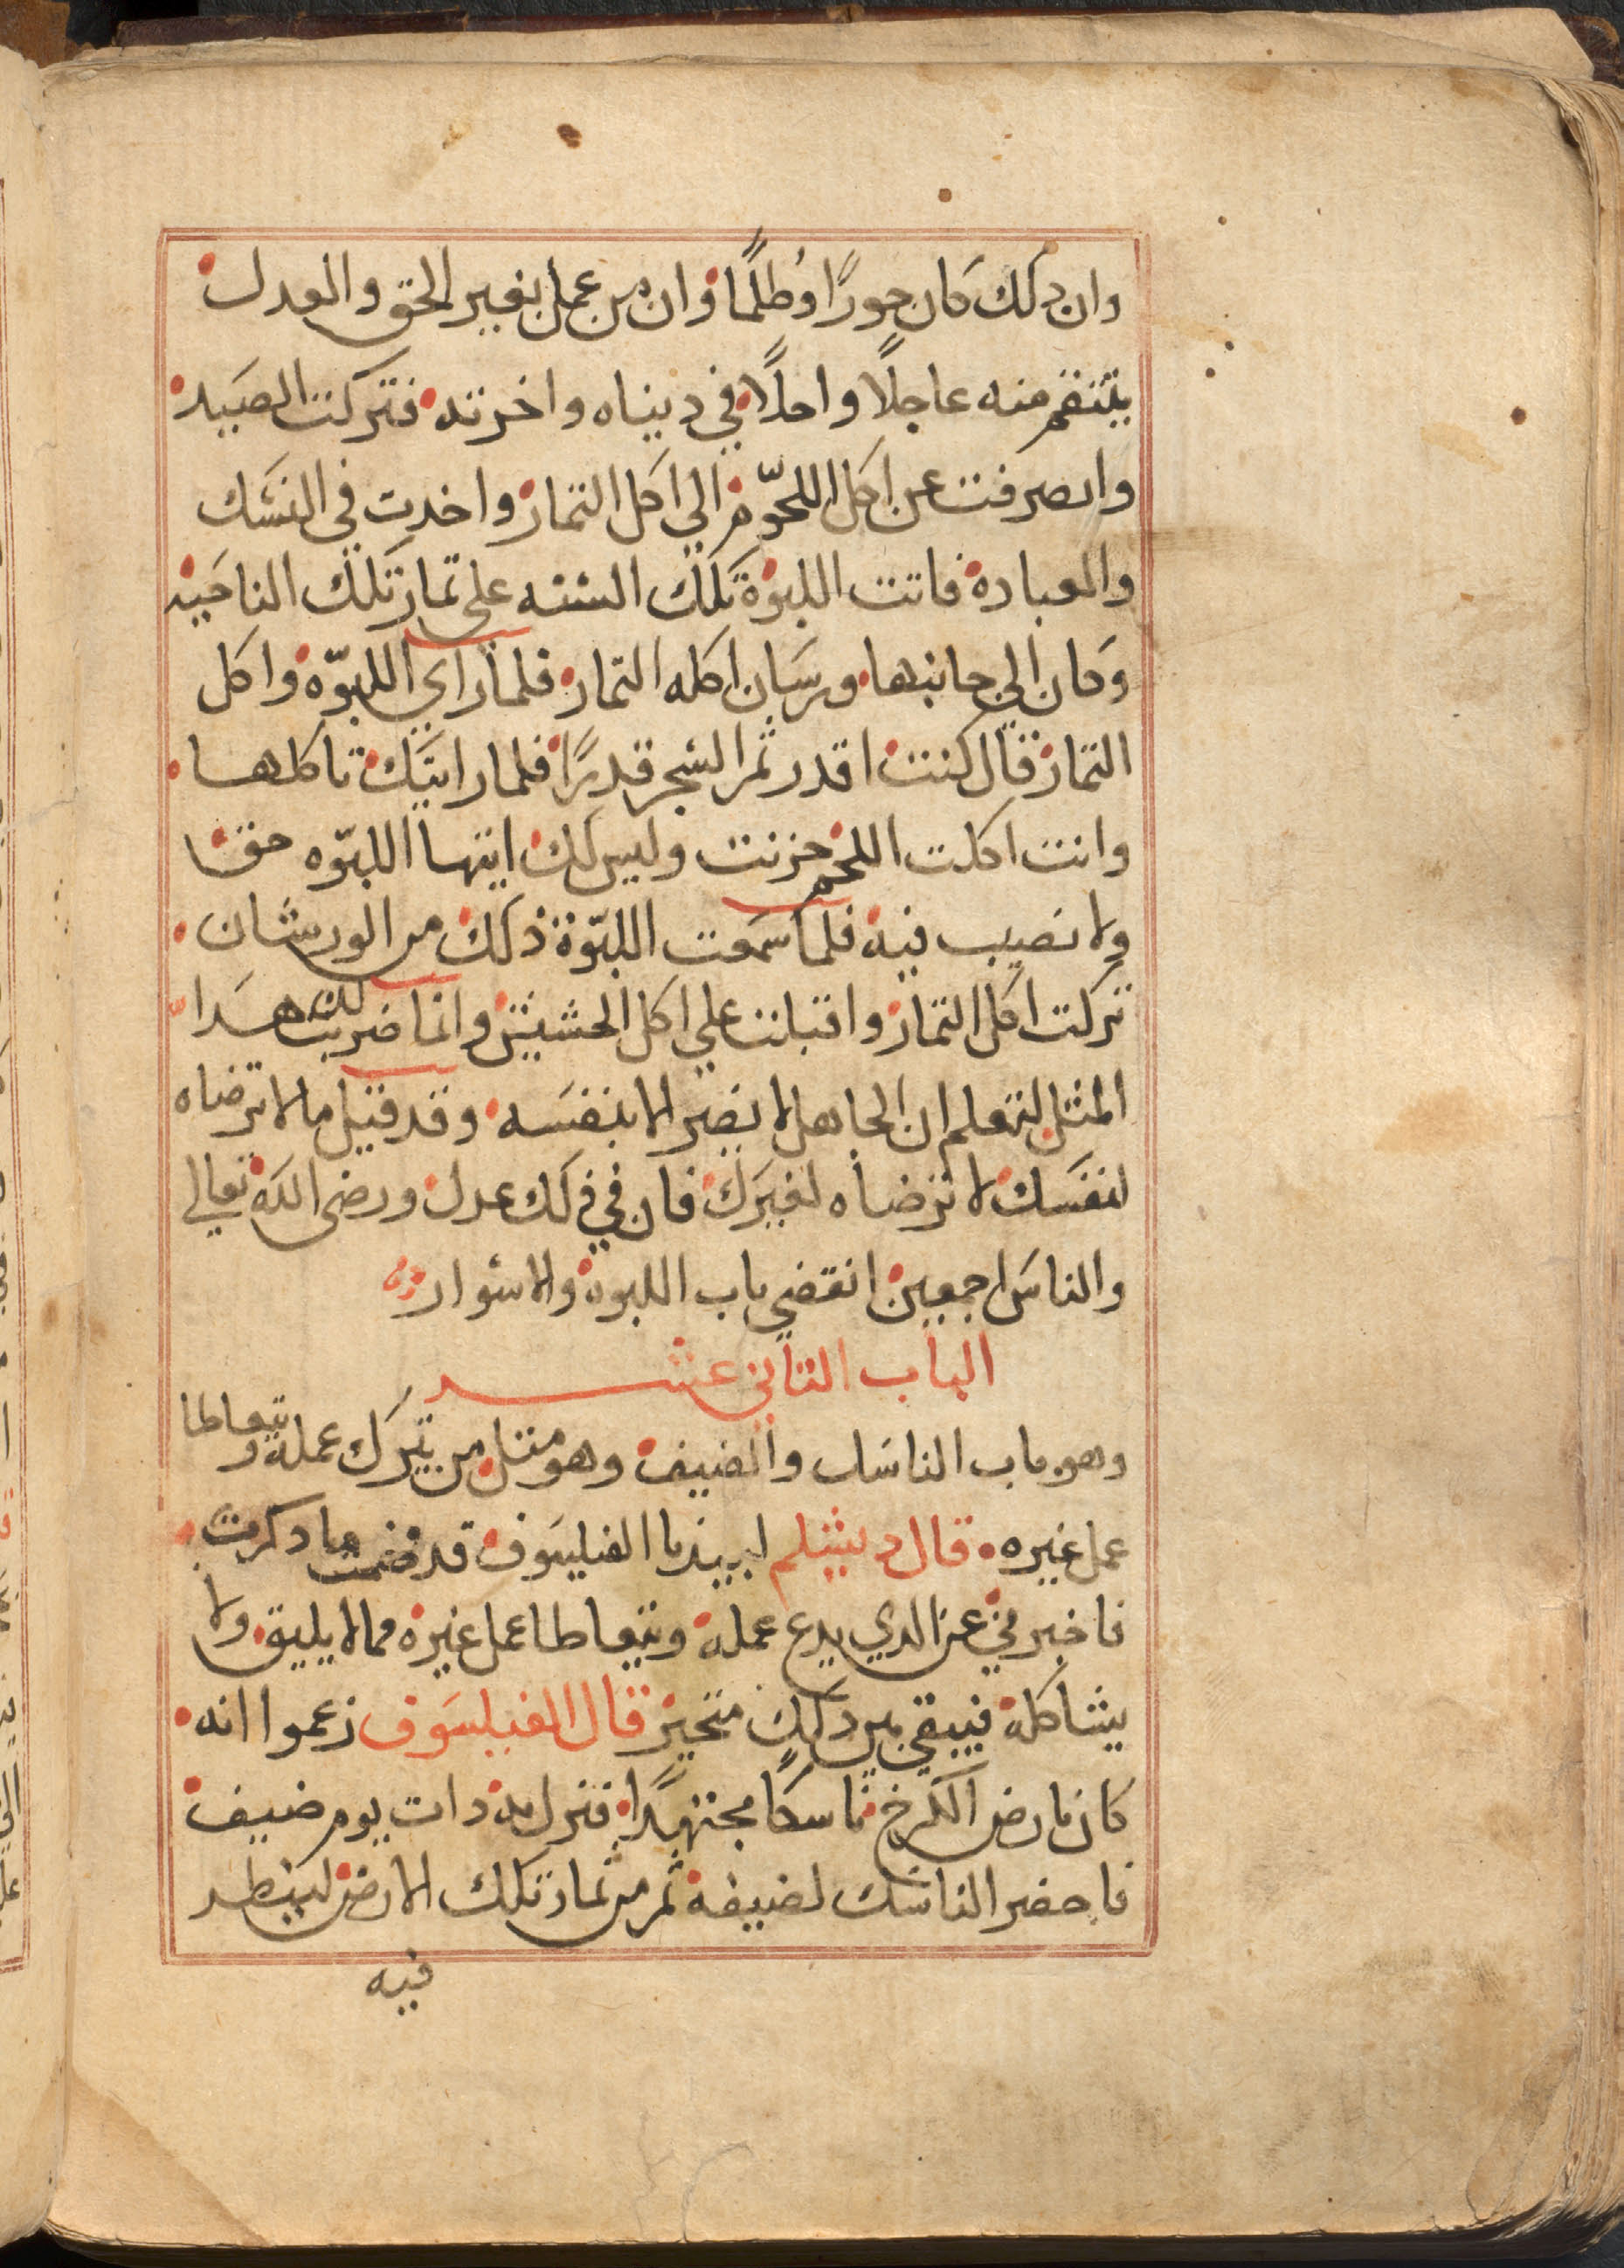 وان دلك كان جورًا وظلمًا وان من عمل بغير الحق والعدل
ينتقم منه عاجلًا واجلًا في ديناه واخرته فتركت الصيد
وانصرفت عن اكل اللحوم الي اكل الثمار واخدت في النسك
والعباده فاتت اللبوة تلك السنه على ثمار تلك الناحيه
وكان الي جانبها ورشان اكله الثمار فلما راي اللبوّه واكل
الثمار قال كنت اقدر ثمر الشجر قدرًا فلما رايتك تاكلها
وانت اكلت اللحم حزنت وليس لك ايتها اللبوّه حق
ولا نصيب فيه فلما سمعت اللبوّة ذلك من الورشان
تركت اكل الثمار واقبلت علي اكل الحشيش وانما ضربت لك هدا
المثل لتعلم ان الجاهل لا يضر الا بنفسه وقد قيل ما لا ترضاه
لنفسك لا ترضاه لغيرك فان في ذلك عدل ورضى الله تعالي
والناس اجمعين انقضي باب اللبوة والاسوار
الباب الثاني عشر
وهو باب الناسك والضيف وهو مثل من يترك عمله ويتعاطا
عمل غيره قال دبشلم لبيدبا الفيلسوف قد فهمت ما دكرت
فاخبرني عن الدي يدع عمله ويتعاطا عمل غيره مما لا يليق ولا
يشاكله فيبقي بين دلك متحير قال الفيلسوف زعموا انه
كان بارض الكرخ ناسكًا مجتهدًا فنزل به دات يوم ضيف
فاحضر الناسك لضيفه ثمر من ثمار تلك الارض ليفطر
فيه